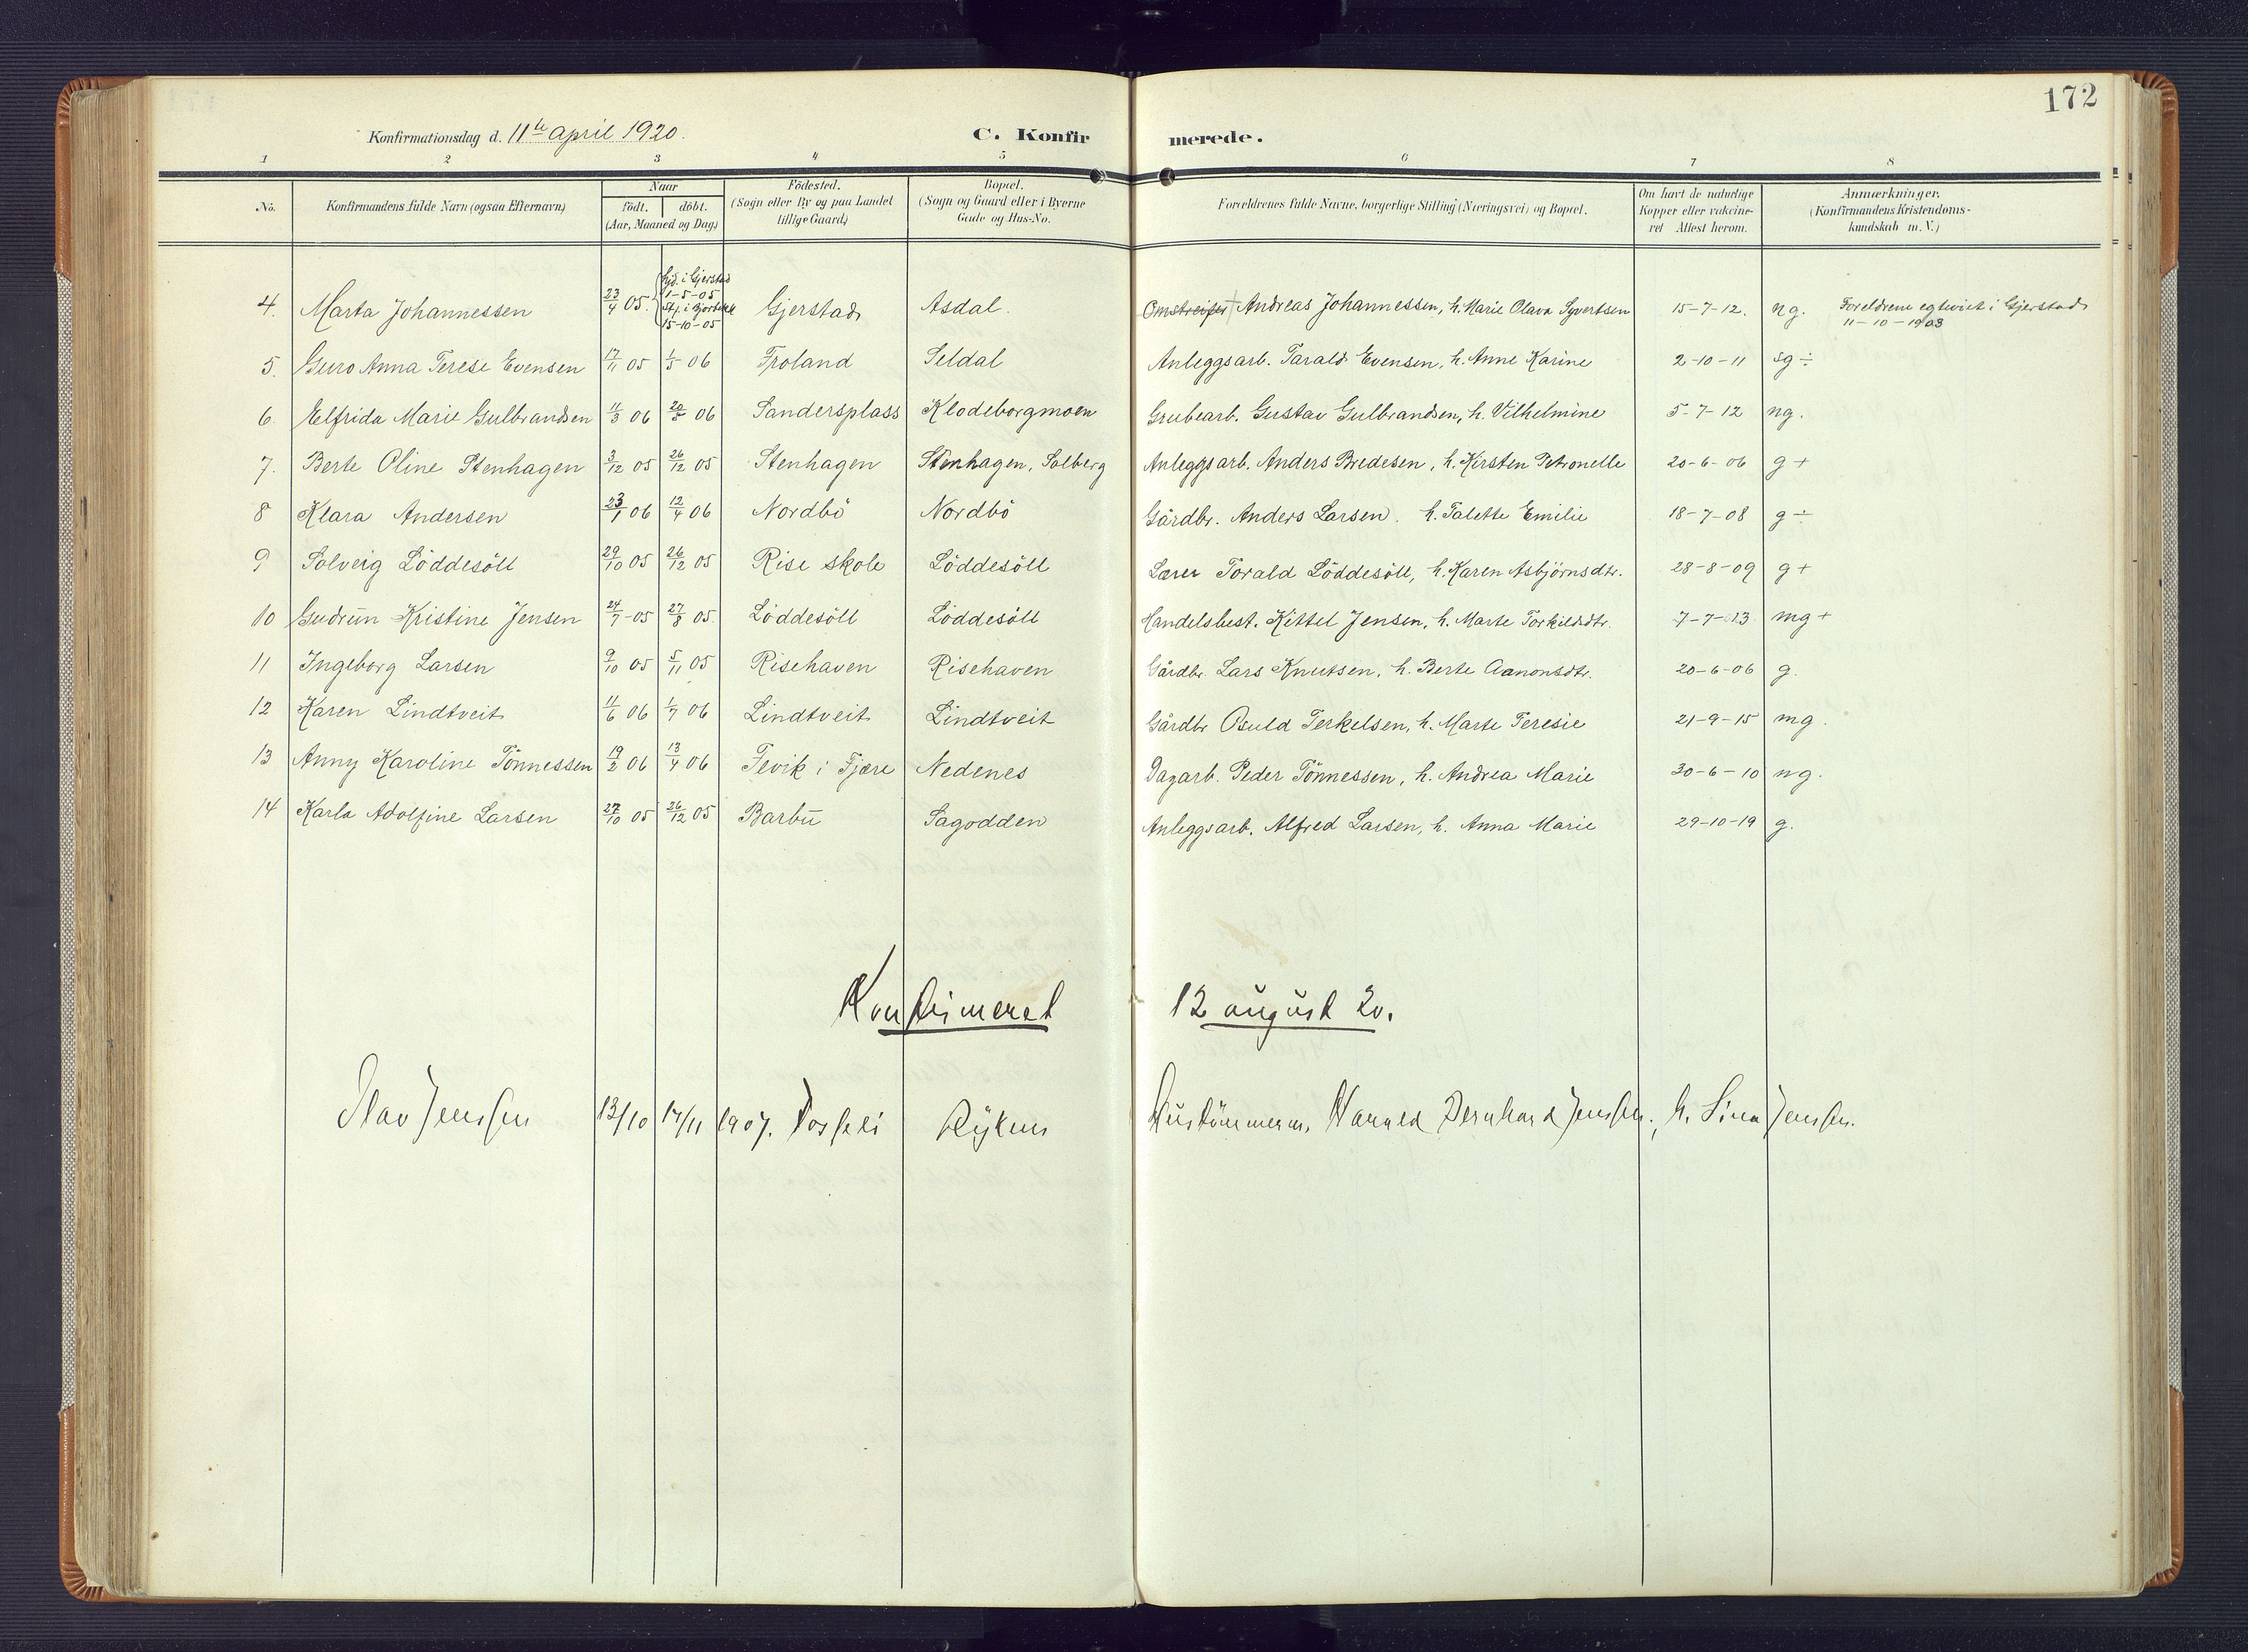 172
Konfirmationsdag d. 11te april 1920.
C. Konfirmerede.
1 2 3 4 5 6 7 8
No. | Konfirmandens fulde Navn (ogsaa Efternavn) | Naar født. døbt. (Aar, Maaned og Dag) | Fødested. (Sogn eller By og paa Landet tillige Gaard) | Bopæl. (Sogn og Gaard eller i Byerne Gade og Hus-No. | Forældrenes fulde Navne, borgerlige Stilling (Næringsvei) og Bopæl. | Om havt de naturlige Kopper eller vakcineret Attest herom. | Anmærkninger. (Konfirmandens Kristendomskundskab m. V.)
4. Marta Johannessen 23/4 05. hjd. i Gjerstad 1-5-05 st. i 15-10-05 Gjerstad Asdal. Omstreifer + Andreas Johannessen, h. Marie Olava Syvertsen 15-7-12. ng. Foreldrene egteviet i Gjerstad 11-10-1903
5. Guro Anna Terese Evensen 17/11 05 1/5 06 Froland Seldal Anleggsarb. Tarald Evensen, h. Anne Karine 2-10-11 sg ÷
6. Elfrida Marie Gulbrandsen 11/3 06 20/5 06 Sandersplass Klodeborgmoen Grubearb. Gustav Gulbrandsen, h. Vilhelmine 5-7-12 ng.
7. Berte Oline Stenhagen 3/12 05 26/12 05 Stenhagen Stenhagen, Solberg Anleggsarb. Anders Bredesen, h. Kirsten Petronelle 20-6-06 g +
8 Klara Andersen 23/1 06 12/4 06 Nordbö Nordbö Gårdbr. Anders Larsen. h. Talette Emilie 18-7-08 g ÷
9 Solveig Löddesöll 29/10 05 26/12 05 Rise skole Löddesöll Lærer Torald Löddesöll, h. Karen Asbjörnsdtr. 28-8-09 g +
10 Gudrun Kristine Jensen 24/7-05 27/8 05. Löddesöll Löddesöll Handelsbest. Kittel Jensen, h. Marte Torkildsdtr. 7-7-13 mg +
11 Ingeborg Larsen 9/10 05 5/11 05 Risehaven Risehaven Gårdbr. Lars Knutsen, h. Berte Aanonsdtr. 20-6-06 g.
12 Karen Lindtveit 11/6 06 1/7 06 Lindtveit Lindtveit Gårdbr Osuld Terkelsen, h. Marte Teresie 21-9-15 mg.
13 Anny Karoline Tönnessen 19/2 06 13/4 06 Fevik i Fjære Nedenes Dagarb. Peder Tönnessen, h. Andrea Marie 30-6-10 ng.
14 Karla Adolfine Larsen 27/10 05 26/12 05 Barbu Sagodden Anleggsarb. Alfred Larsen, h. Anna Marie 29-10-19 g.
Konfirmeret 12 august 20.
Olav Jenssen 13/10 17/11 1907. Rykene Hustömmerm. Harald Bernhard Jenssen, h. Lina Jenssen.